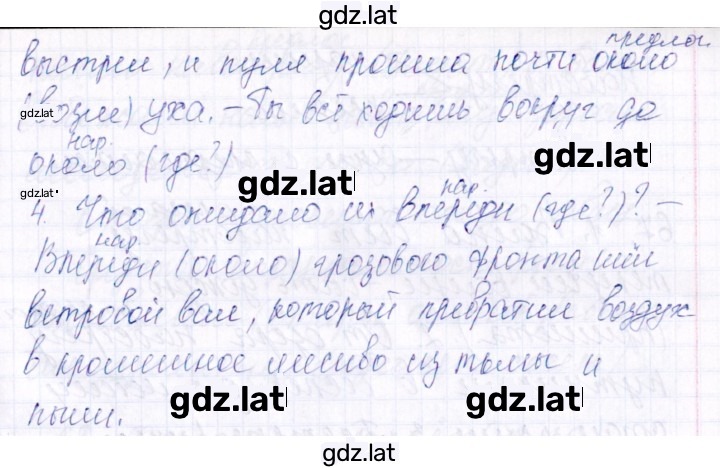 gdz.lat
предлог.
выстрел, и пуля прошла почти около
gdz.lat
(возле) уха. – Ты всё ходишь вокруг да
нар.
около (где?)
gdz.lat gdz.lat
gdz.lat
нар.
4. Что ожидало их впереди (где?)? –
нар.
Впереди (около) грозового фронта шёл
ветровой вал, который превратил воздух
в кромешное месиво из тьмы и
gdz.lat gdz.lat
пыли.
gdz.lat